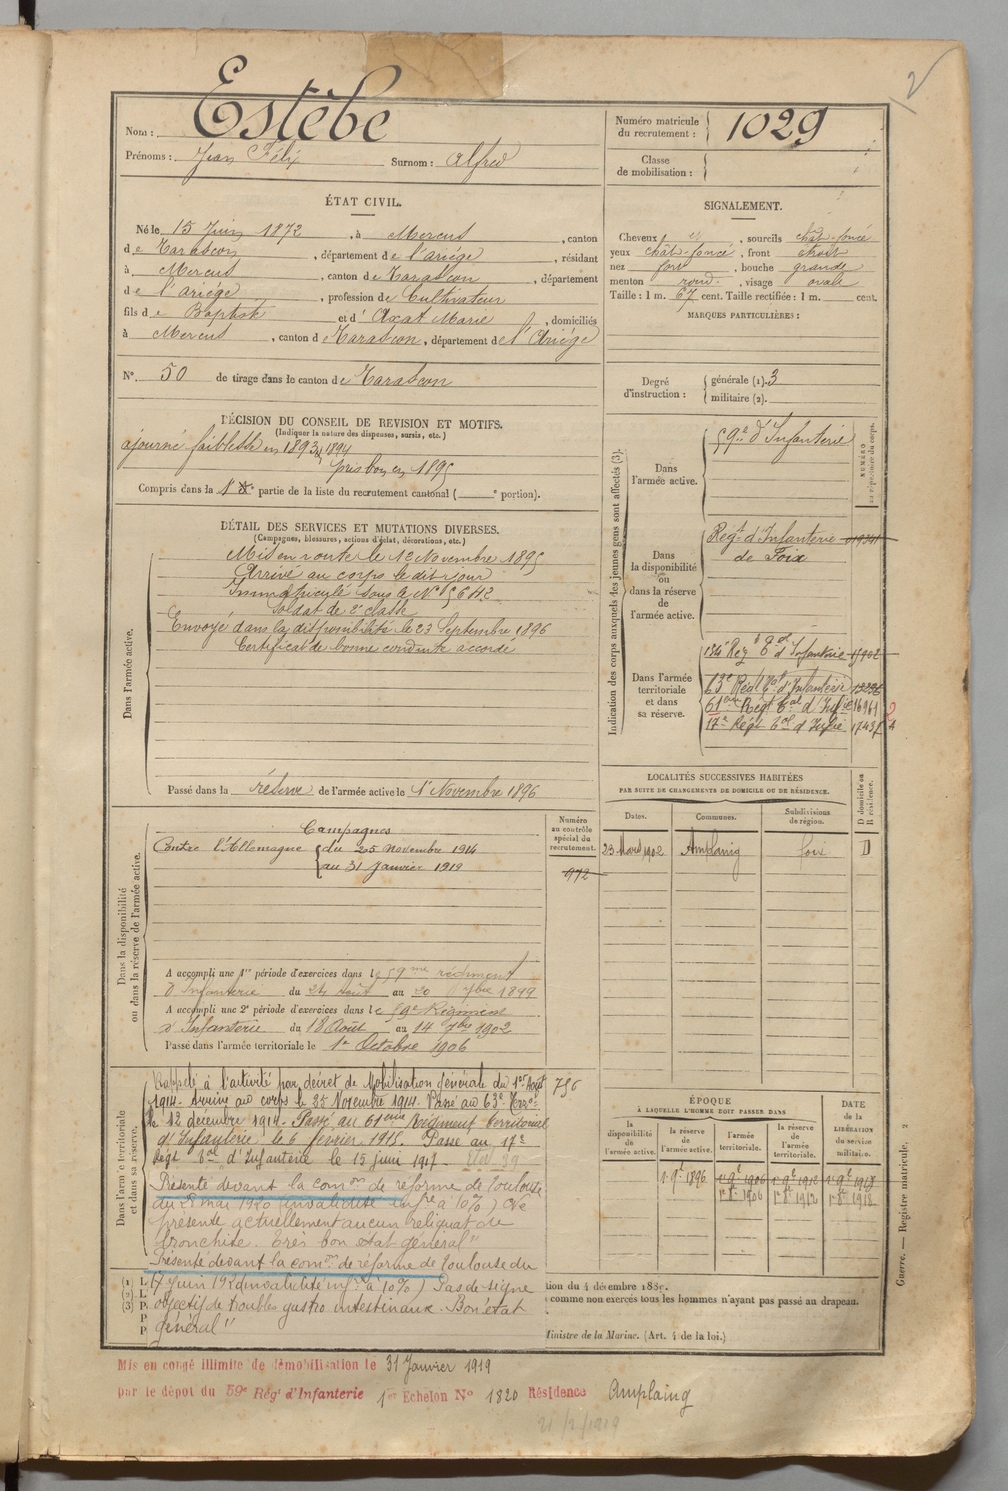 2
Estèbe
Nom :
Prénoms : Jean Félix Surnom : Alfred
Numéro matricule du recrutement : 1029
Classe de mobilisation :
ÉTAT CIVIL.
Né le 15 Juin 1872, à Mercus, canton
de Tarascon, département de l'ariége, résidant
à Mercus, canton de Tarascon, département
de l'ariége, profession de Cultivateur
fils de Baptiste et d'Axat Marie, domiciliés
à Mercus, canton de Tarascon, département de l'Ariége
N° 50 de tirage dans le canton de Tarascon
SIGNALEMENT.
Cheveux et, sourcils chât-foncé
yeux chât-foncé, front étroit
nez fort, bouche grande
menton rond, visage ovale
Taille : 1 m. 67 cent. Taille rectifiée : 1 m. cent.
MARQUES PARTICULIÈRES :
Degré d'instruction : générale (1). 3
militaire (2).
DÉCISION DU CONSEIL DE REVISION ET MOTIFS.
(Indiquer la nature des dispenses, sursis, etc.)
ajourné faiblesse en 1893 & 1894
pris bon en 1895
Compris dans la 1re partie de la liste du recrutement cantonal ( e portion).
DÉTAIL DES SERVICES ET MUTATIONS DIVERSES.
(Campagnes, blessures, actions d'éclat, décorations, etc.)
Dans l'armée active.
Mis en route le 12 Novembre 1895
Arrivé au corps le dit jour
Immatriculé sous le N° 5642
Soldat de 2e classe
Envoyé dans la disponibilité le 23 Septembre 1896
Certificat de bonne conduite accordé
Passé dans la réserve de l'armée active le 1er Novembre 1896
Indication des corps auxquels les jeunes gens sont affectés (3).
NUMÉRO au répertoire du corps.
Dans l'armée active.
59e d'Infanterie
Dans la disponibilité ou dans la réserve de l'armée active.
Régt d'Infanterie
de Foix
Dans l'armée territoriale et dans sa réserve.
Reg t al d'Infanterie 17902
63e Régt tal d'Infanterie
61eme Régt tal d'Infie 16961
17e Régt tal d'Infie 17437
LOCALITÉS SUCCESSIVES HABITÉES
PAR SUITE DE CHANGEMENTS DE DOMICILE OU DE RÉSIDENCE.
D domicile ou R résidence.
Dates. Communes. Subdivisions de région.
23 Mars 1902 Amplaing foix D
Dans la disponibilité ou dans la réserve de l'armée active.
Numéro au contrôle spécial du recrutement.
972
Campagnes
Contre l'Allemagne du 25 novembre 1914
au 31 Janvier 1919
A accompli une 1re période d'exercices dans le 59me régiment
d'Infanterie du 24 Août au 20 7bre 1899
A accompli une 2e période d'exercices dans le 59e Régiment
d'Infanterie du 18 Août au 14 7bre 1902
Passé dans l'armée territoriale le 1er Octobre 1906
Dans l'armée territoriale et dans sa réserve.
756
Rappelé à l'activité par décret de Mobilisation Générale du 1er Août
1914. Arrivé au corps le 25 Novembre 1914. Passé au 63e Terr
le 12 décembre 1914. Passé au 61eme Régiment territorial
d'Infanterie le 6 février 1915. Passé au 17e
Régt tal d'Infanterie le 15 juin 1917.
Présenté devant la comon de réforme de Toulouse
du 28 mai 1920 (invalidité infre à 10%) Ne
présente actuellement aucun reliquat de
bronchite. très bon état général"
Présenté devant la comon de réforme de Toulouse du
17 Juin 192 (invalidité infre à 10%) Pas de signe
objectif de troubles gastro intestinaux. Bon état
général"
ÉPOQUE
À LAQUELLE L'HOMME DOIT PASSER DANS
DATE de la LIBÉRATION du service militaire.
la disponibilité de l'armée active. la réserve de l'armée active. l'armée territoriale. la réserve de l'armée territoriale.
1 9e 1896 1 9e 1906 1 9e 1912 1 9e 1918
1 8e 1906 1 8e 1912 1 8e 1918
(1) L
(2) L
(3) P
P
P
tion du 4 décembre 1889.
comme non exercés tous les hommes n'ayant pas passé au drapeau.
Ministre de la Marine. (Art. 4 de la loi.)
Guerre. — Registre matricule. 2
Mis en congé illimité de démobilisation le 31 Janvier 1919
par le dépot du 59e Régt d'Infanterie 1er Echelon N° 1820 Résidence Amplaing
21/2/1919